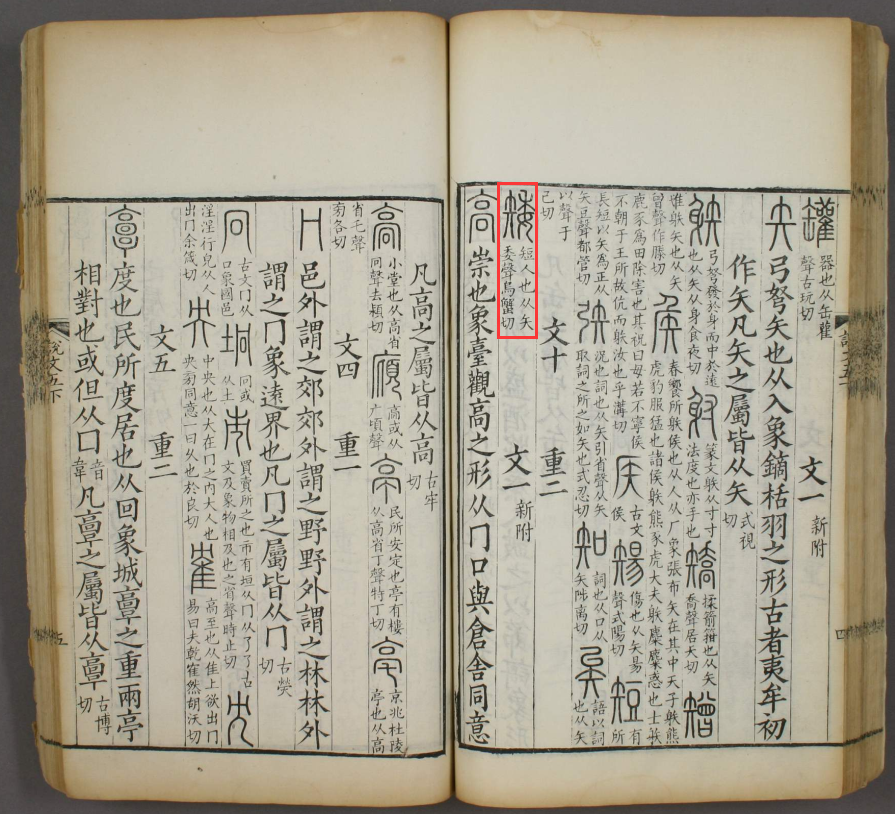 罐 器也从缶雚聲古玩切 文一 新附
矢 弓弩矢也从入象鏑栝羽之形古者夷牟初
作矢凡矢之屬皆从矢 式視切
䠶 弓弩發於身而中於遠也从矢从身食夜切 射 篆文䠶从寸寸法度也亦手也 矯 揉箭箝也从矢喬聲居夭切 矰
隿䠶矢也从矢曾聲作滕切 矦 春饗所䠶矦也从人从厂象張布矢在其中天子䠶熊虎豹服猛也諸矦䠶熊豕虎大夫䠶麋麋惑也士䠶
鹿豕為田除害也其祝曰毋若不寧矦不朝于王所故伉而䠶汝也乎溝切 𥎦 古文矦 𥏻 傷也从矢昜聲式陽切 短 有所
長短以矢為正从矢豆聲都管切 矤 況也詞也从矢引省聲从矢取詞之所之如矢也式忍切 知 詞也从口从矢陟离切 矣 語以詞也从矢
以聲于己切 文十 重二
矮 短人也从矢委聲烏蟹切 文一 新附
高 崇也象臺觀高之形从冂口與倉舍同意
說文五下
四
凡高之屬皆从高 古牢切
高 小堂也从高省冋聲去潁切 廎 高或从广頃聲 亭 民所安定也亭有樓从高省丁聲特丁切 亳 京兆杜陵亭也从高
省乇聲旁各切 文四 重一
冂 邑外謂之郊郊外謂之野野外謂之林林外
謂之冂象遠界也凡冂之屬皆从冂 古熒切
冋 古文冂从口象國邑 坰 冋或从土 市 買賣所之也市有垣从冂从了了古文及象物相及也之省聲時止切 冘
淫淫行皃从人出冂余箴切 央 中央也从大在冂之內大人也央㫄同意一曰久也於良切 隺 高至也从隹上欲出冂易曰夫乾隺然胡沃切
文五 重二
𩫏 度也民所度居也从回象城𩫏之重兩亭
相對也或但从口 音韋 凡𩫏之屬皆从𩫏 古博切
說文五下
五